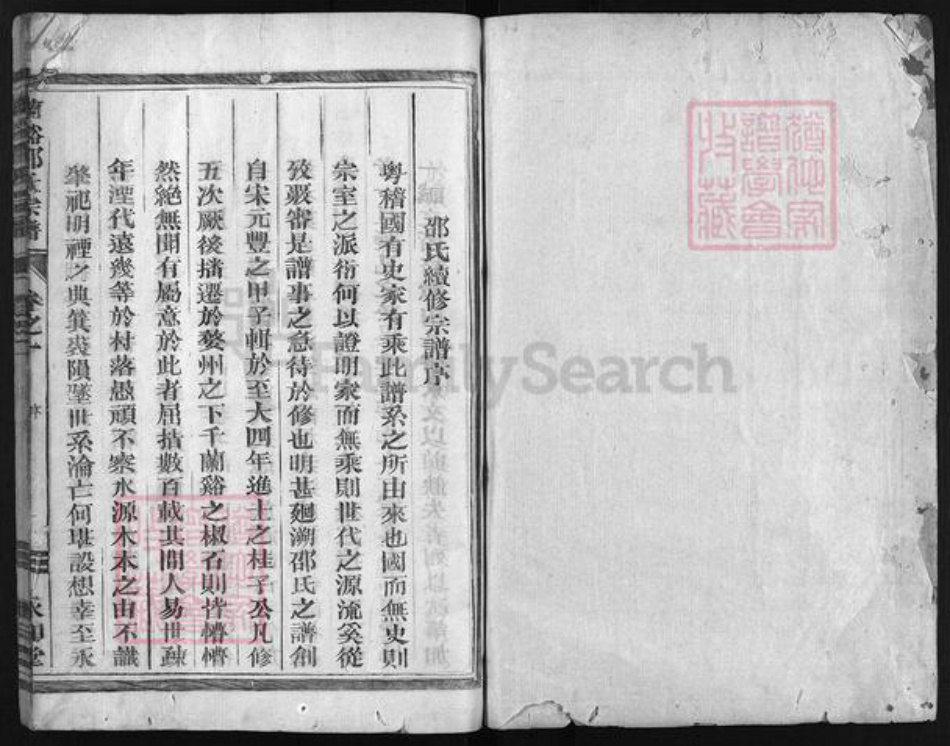 邵氏續修宗譜序
粵稽國有史家有乘此譜系之所由來也國而無史則
宗室之派衍何以證明家而無乘則世代之源流奚從
攷覈審是譜事之急待於修也明甚廻溯邵氏之譜創
自宋元豐之甲子輯於至大四年進士之桂子公凡修
五次厥後播遷於婺州之下千蘭谿之椒石則皆懵懵
然絕無聞有屬意於此者屈指數百載其間人易世疎
年湮代遠幾等於村落愚頑不察水源木本之由不識
肇祀明禋之典箕裘隕墜世系淪亡何堪設想幸至永
蘭谿邵氏宗譜
卷之一
序
永 堂
猶他家
譜學會
收藏
FamilySearch